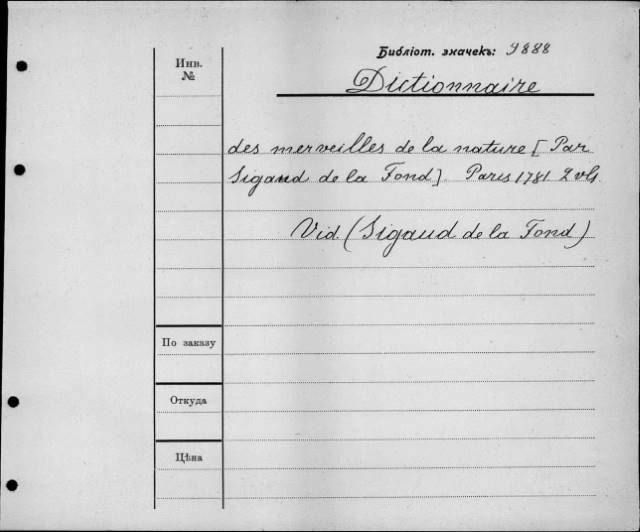 Библіот. значекъ: 9888
Инв. №
Dictionnaire
des merveilles de la nature [Par
Sigaud de la Fond] Paris 1781 2 vls.
Vid. (Sigaud de la Fond)
По заказу
Откуда
Цѣна